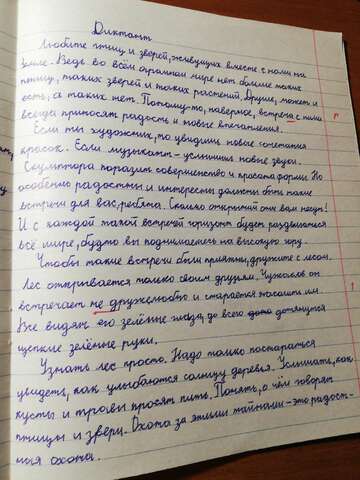 Диктант
Любите птиц и зверей, живущих вместе с нами на
Земле. Ведь во всём огромном мире нет больше таких
птиц, таких зверей и таких растений. Другие, может и
есть, а таких нет. Потому-то, наверное, встреча с ними
всегда приносят радость и новые впечатления.
Если ты художник, то увидишь новые сочетания
красок. Если музыкант - услышишь новые звуки.
Скульптора поразит совершенство и красота форм. Но
особенно радостны и интересны должны быть такие
встречи для вас, ребята. Сколько открытий они вам несут!
И с каждой такой встречей горизонт будет раздвигаться
всё шире, будто вы поднимаетесь на высокую гору.
Чтобы такие встречи были приятны, дружите с лесом.
Лес открывается только своим друзьям. Чужаков он
встречает не дружелюбно и старается насолить им.
Все видят его зелёные глаза, до всего дотянутся
цепкие зелёные руки.
Узнать лес просто. Надо только постараться
увидеть, как улыбаются солнцу деревья. Услышать, как
кусты и травы просят пить. Понять, о чём говорят
птицы и звери. Охота за этими тайнами - это радост-
ная охота.